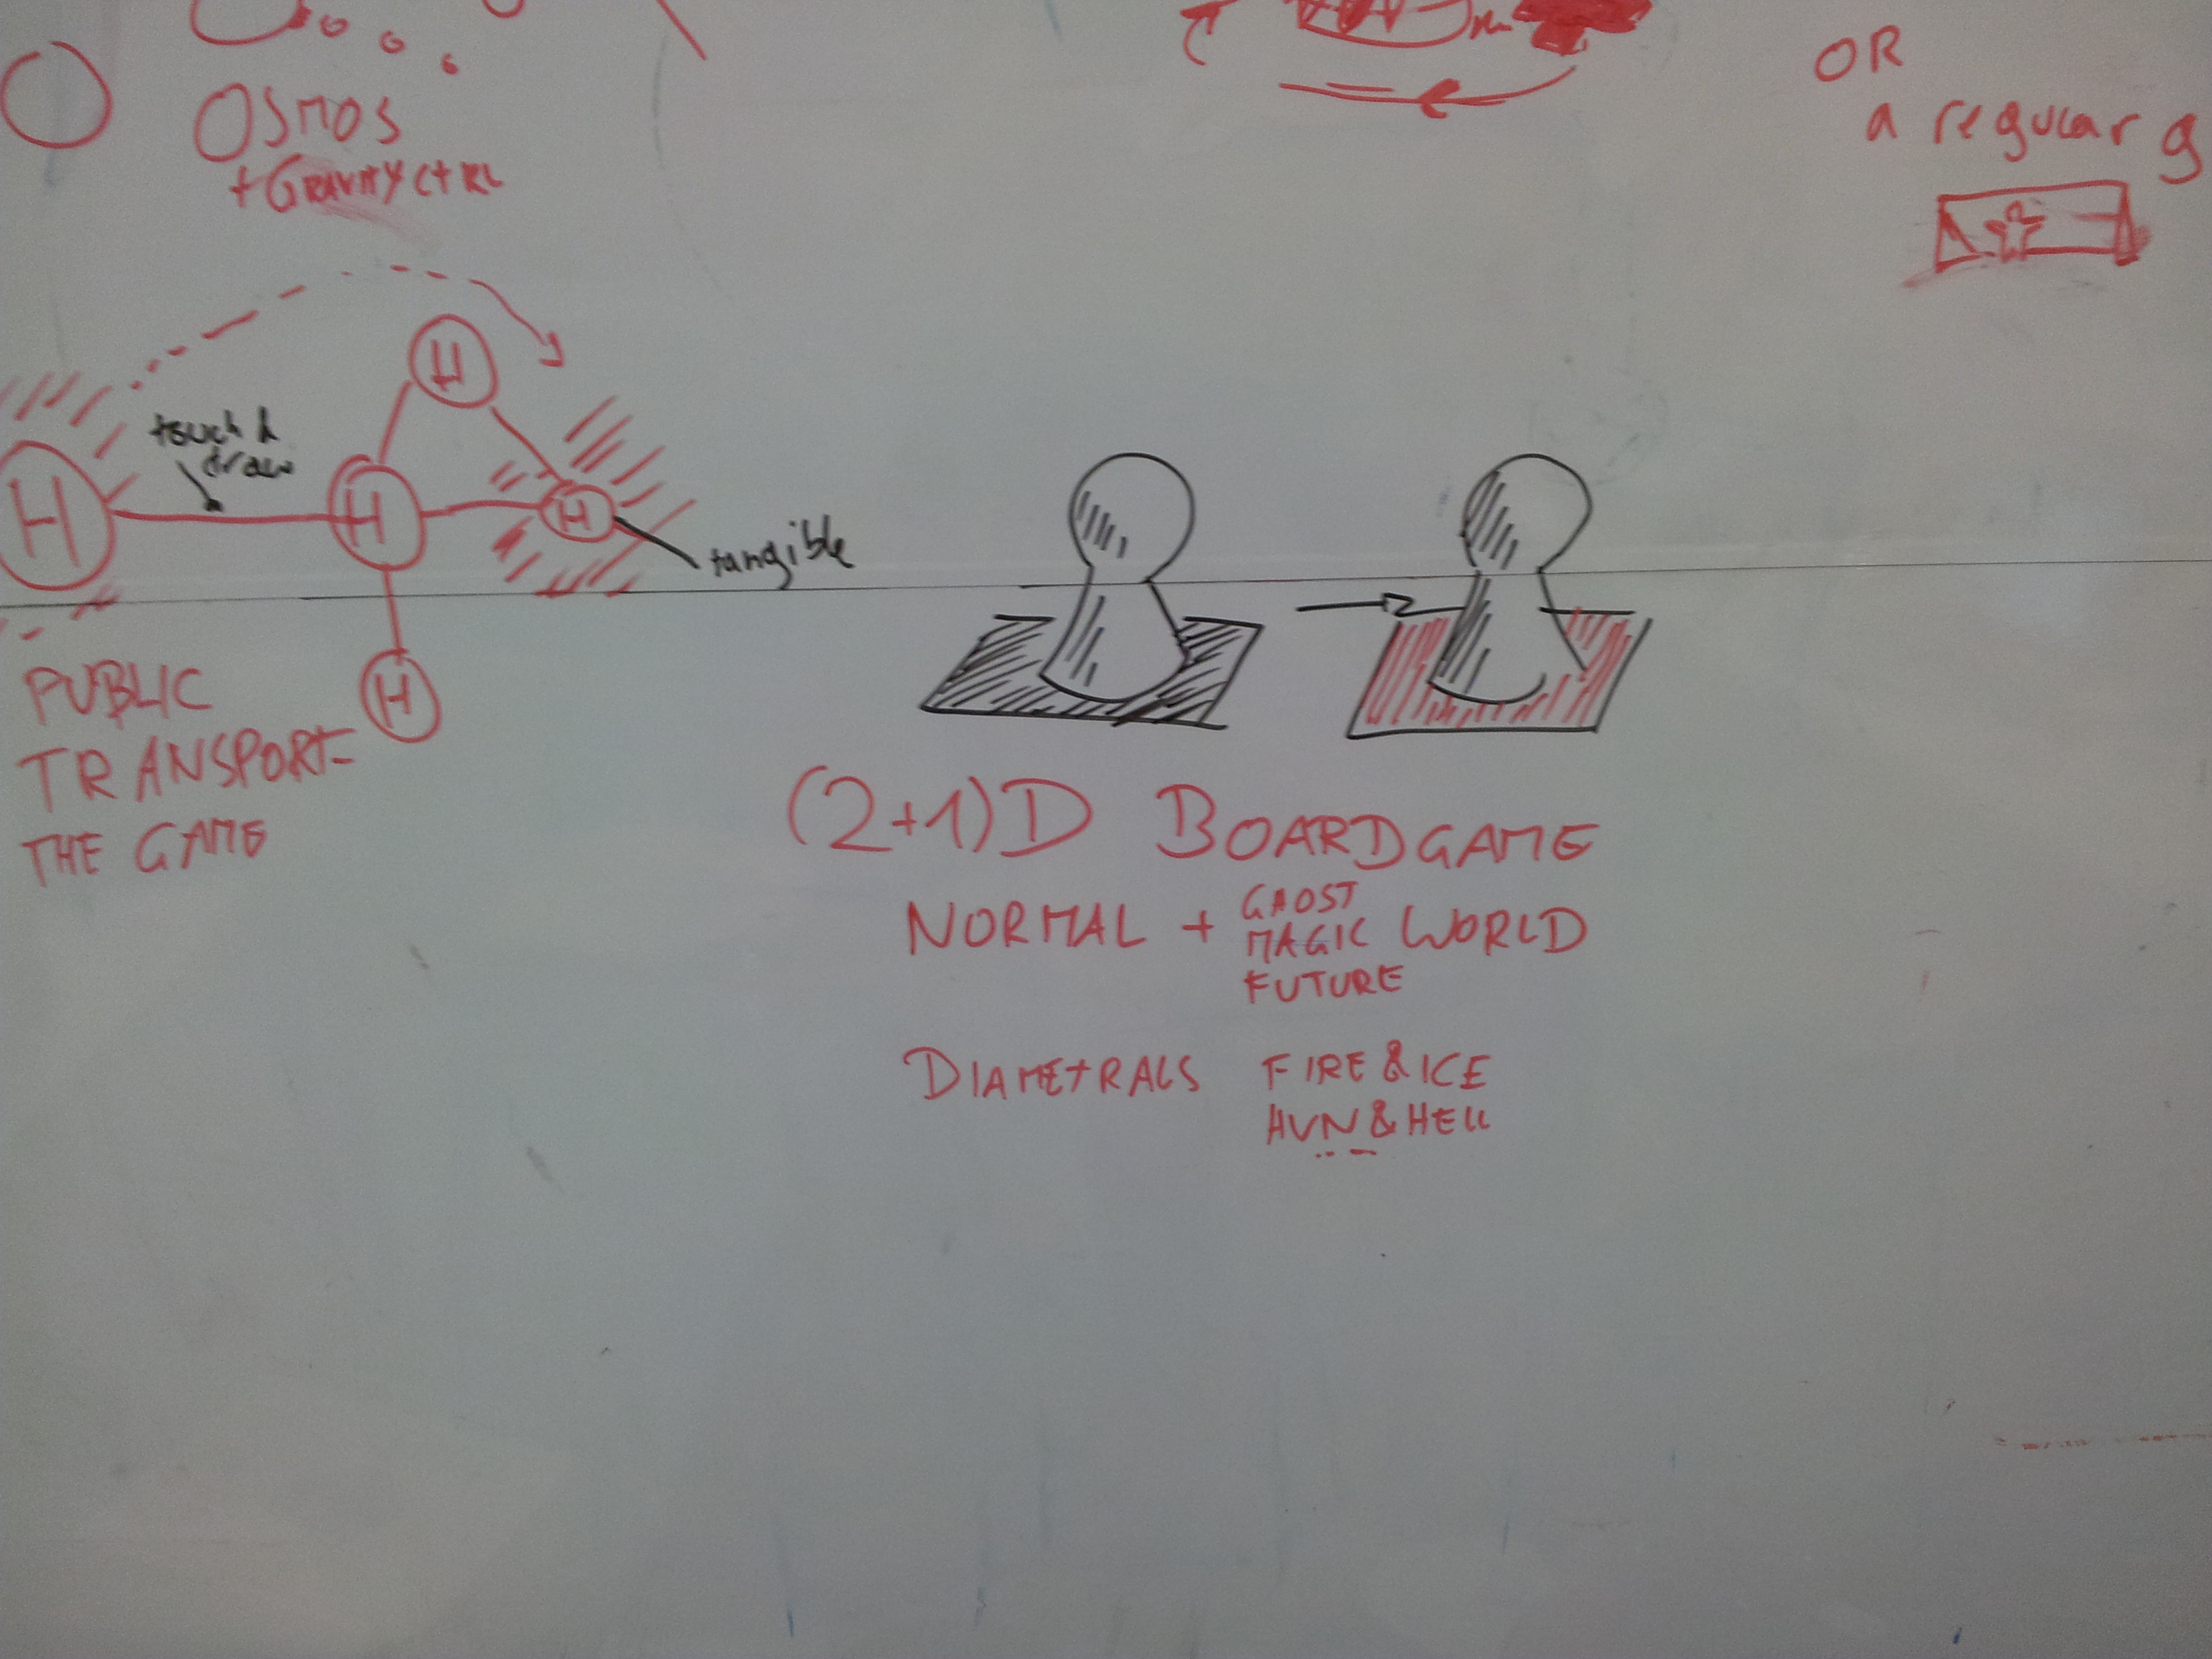 OSMOS
+ GRAVITY CTRL
OR
a regular g
H
touch &
draw
H
H
H
tangible
H
PUBLIC
TRANSPORT-
THE GAME
(2+1)D BOARDGAME
NORMAL + GHOST
MAGIC WORLD
FUTURE
DIAMETRALS FIRE & ICE
HVN & HELL